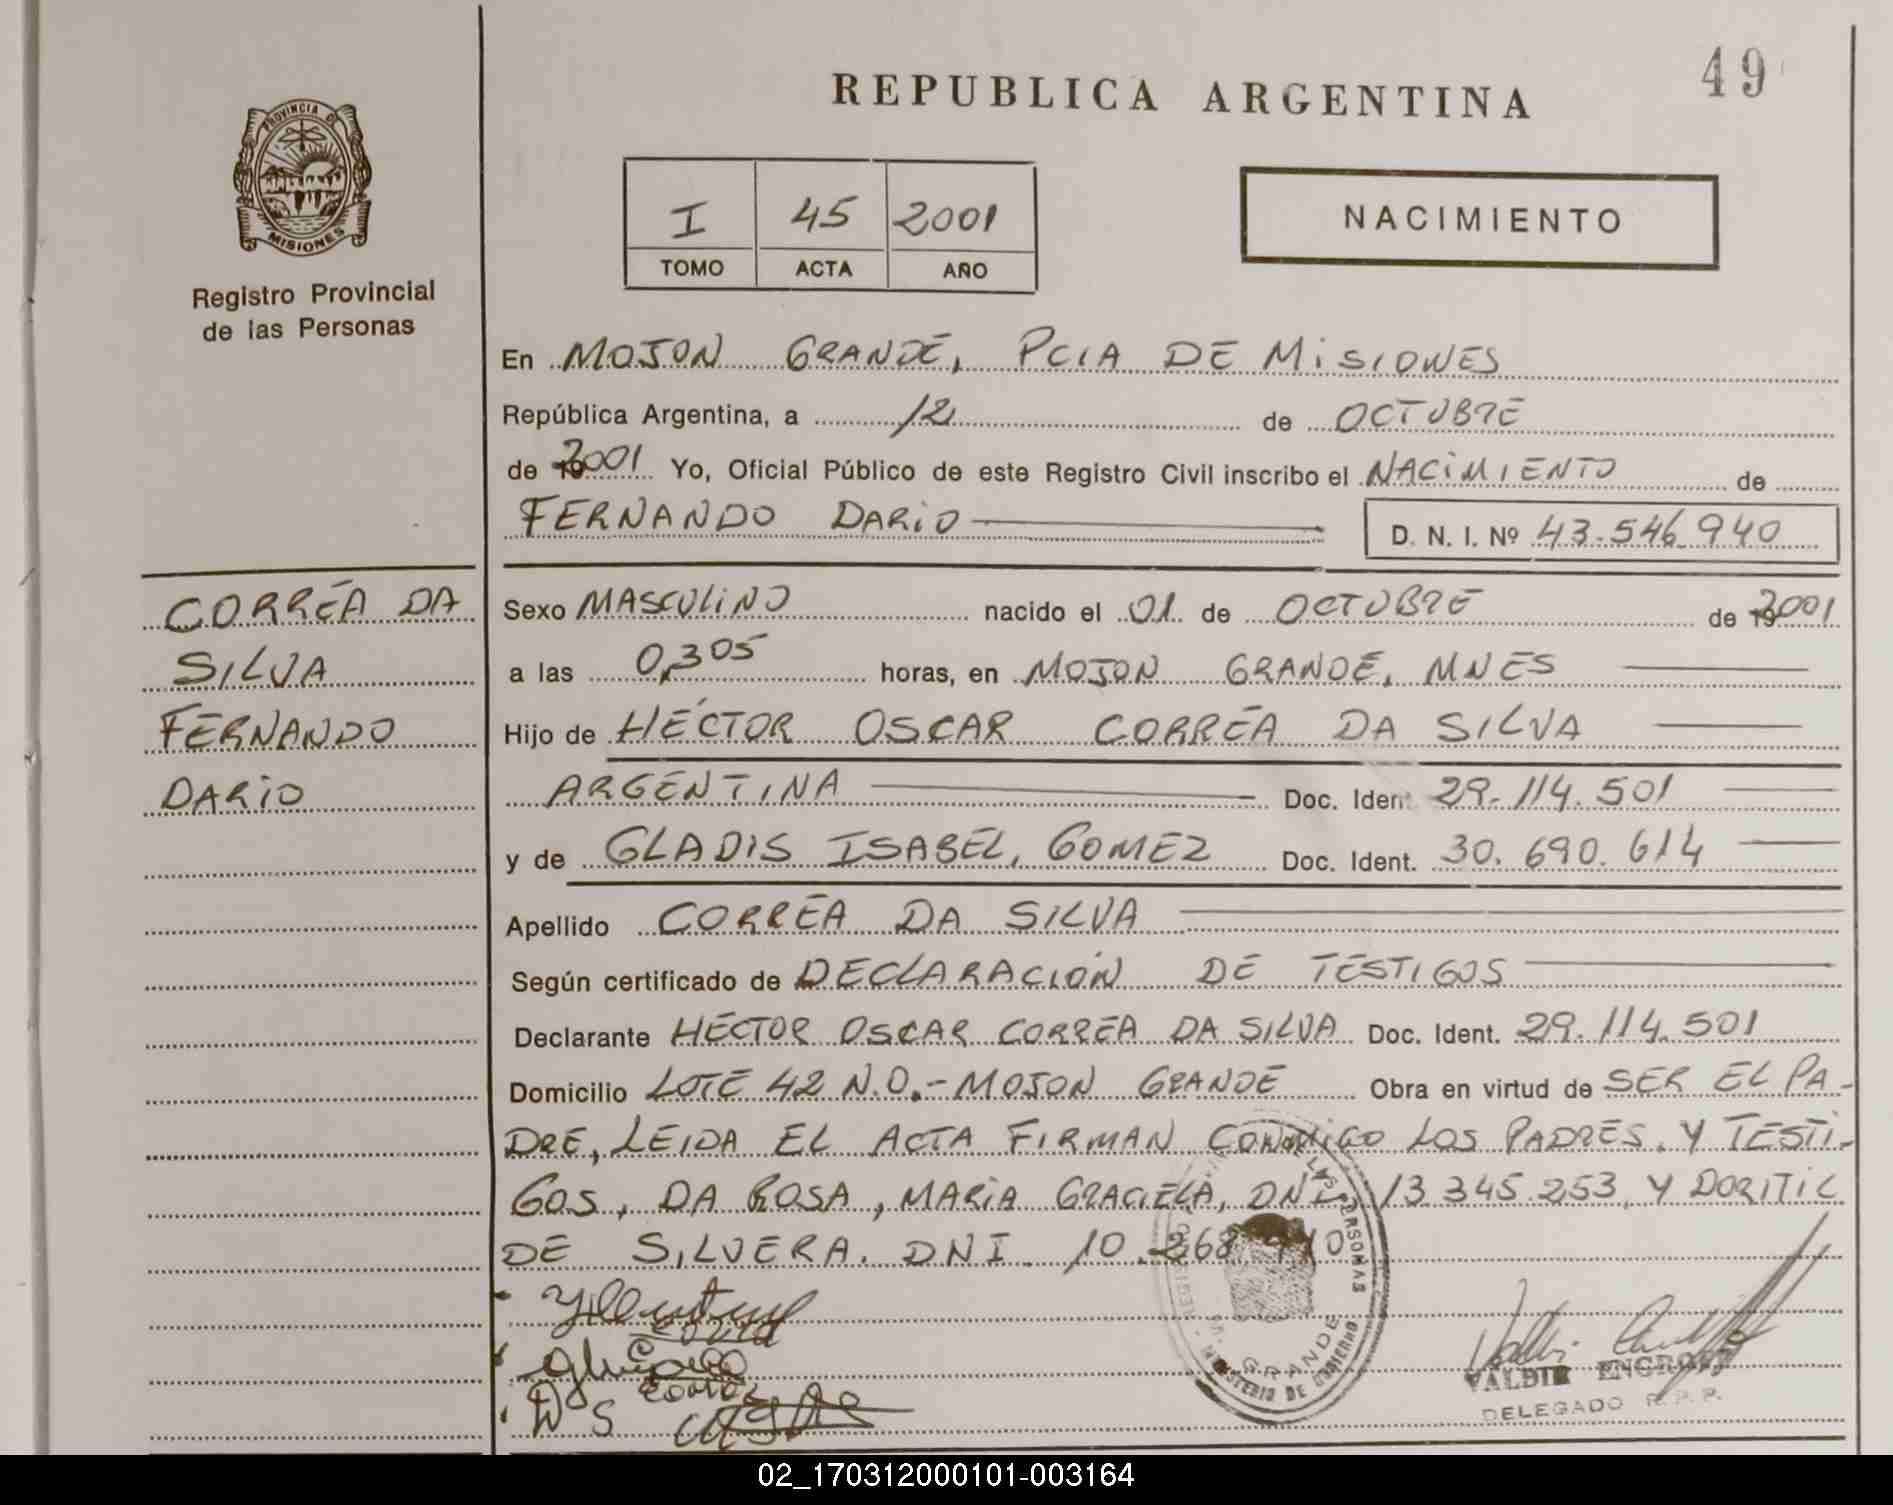 49
REPUBLICA ARGENTINA
PROVINCIA DE
MISIONES
Registro Provincial
de las Personas
I 45 2001
TOMO ACTA AÑO
NACIMIENTO
En MOJON GRANDE, PCIA DE MISIONES
República Argentina, a 12 de OCTUBRE
de 2001 Yo, Oficial Público de este Registro Civil inscribo el NACIMIENTO de
FERNANDO DARIO D. N. I. Nº 43.546.940
CORRÉA DA
SILVA
FERNANDO
DARIO
Sexo MASCULINO nacido el 01 de OCTUBRE de 2001
a las 0,305 horas, en MOJON GRANDE, MNES
Hijo de HÉCTOR OSCAR CORRÉA DA SILVA
ARGENTINA Doc. Ident. 29.114.501
y de GLADIS ISABEL, GOMEZ Doc. Ident. 30.690.614
Apellido CORRÉA DA SILVA
Según certificado de DECLARACIÓN DE TESTIGOS
Declarante HÉCTOR OSCAR CORREA DA SILVA Doc. Ident. 29.114.501
Domicilio LOTE 42 N.O.- MOJON GRANDE Obra en virtud de SER EL PA-
DRE, LEIDA EL ACTA FIRMAN CONMIGO LOS PADRES, Y TESTI-
GOS, DA ROSA, MARIA GRACIELA, DNI 13.345.253, Y DORITIL
DE SILVERA. DNI 10.268
GRANDE
MINISTERIO DE GOBIERNO
VALDIR
DELEGADO R.P.P.
02_170312000101-003164